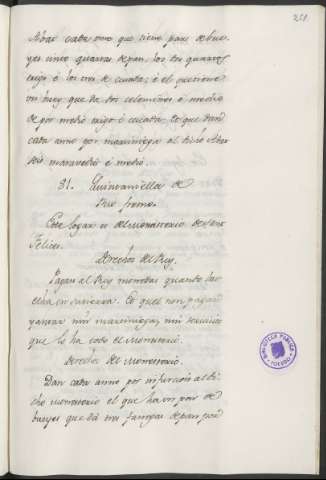 221
Abat cada omo que tiene par de bue-
yes cinco quartas de pan, los dos quartos
trigo é los tres de cevada; é el que tiene
un buey que da dos celemines é medio
de por medio trigo é cevada, lo que dan
cada anno por marziniega al dicho Abat
seis maravedis é medio.
81. Quintaniella de
Rio fremo.
Este logar es del Monesterio de Sant
Felices.
Derechos del Rey.
Pagan al Rey monedas quando las
echan en la tierra. Et que non pagan
yantar nin marziniega, nin servicios
que lo ha todo el Monesterio.
Derechos del Monesterio.
Dan cada anno por infurcion al di-
cho Monesterio el que ha un par de
bueyes que dá tres fanegas de pan por
BIBLIOTECA PUBLICA
TOLEDO